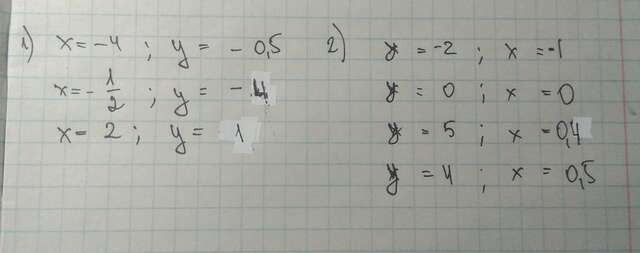 1) x = -4 ; y = - 0,5
x = - 1/2 ; y = - 4
x = 2 ; y = 1
2) y = -2 ; x = -1
y = 0 ; x = 0
y = 5 ; x = 0,4
y = 4 ; x = 0,5